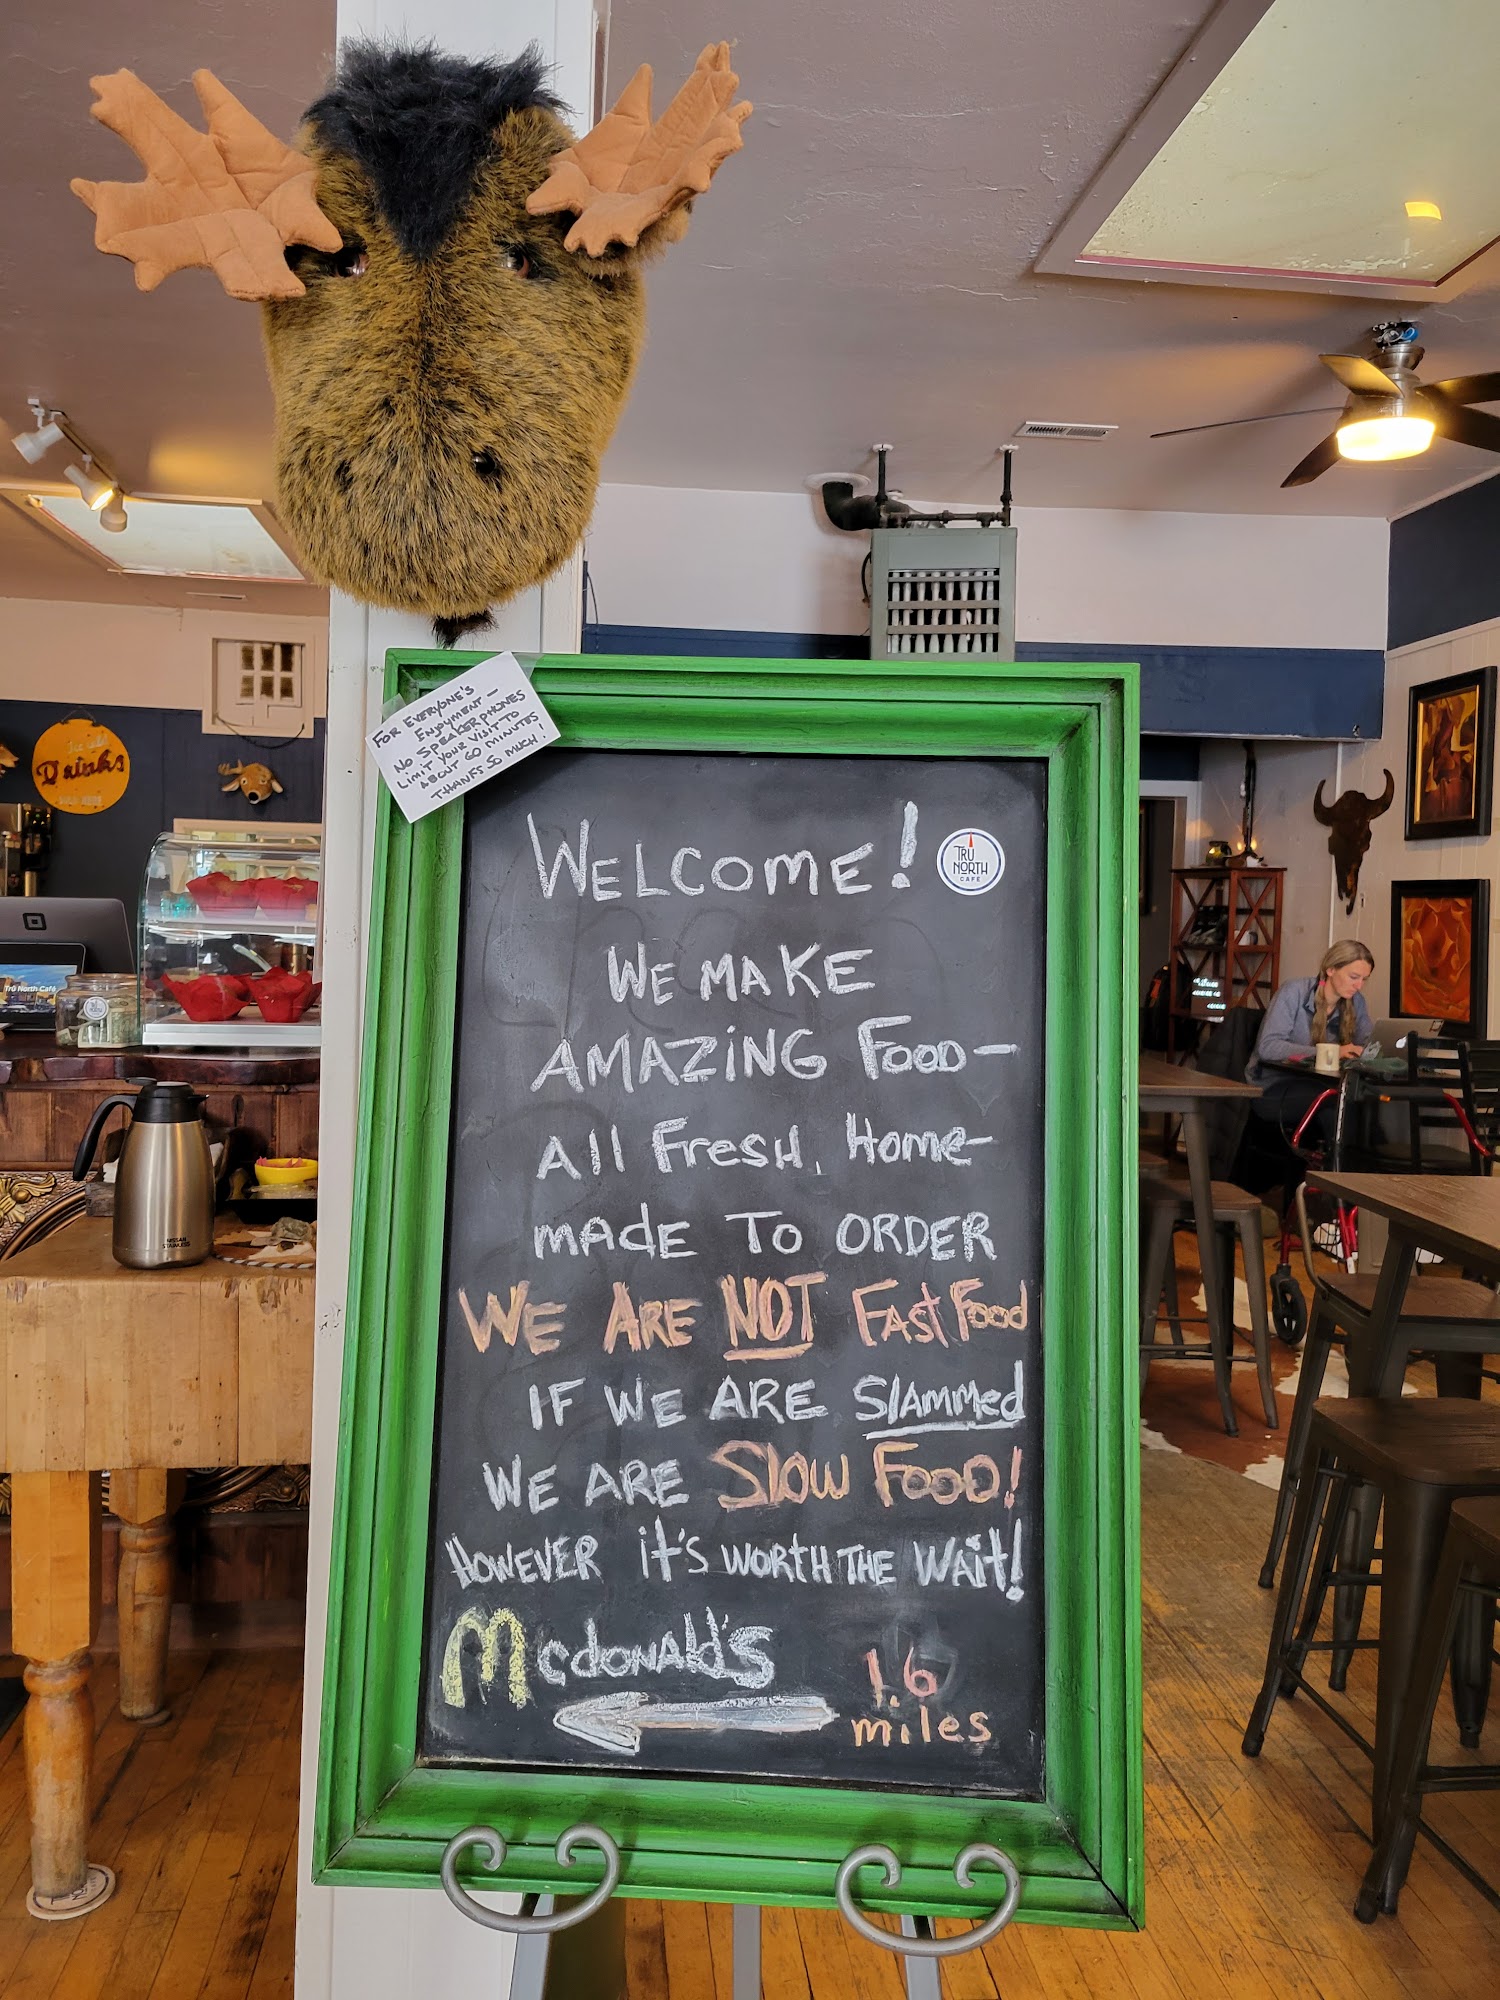 For Everyone's
Enjoyment –
No Speakerphones
Limit your visit to
about 60 minutes
Thanks so much!
WELCOME!
TRU
NORTH
CAFE
WE MAKE
AMAZiNG FOOD –
All FresH, Home-
made TO ORDER
WE ARE NOT FAST FOOD
IF WE ARE SlAmmed
WE ARE SlOW FOOD!
HOWEVER it's WORTH THE WAit!
Mcdonald's
1.6
miles
Drinks
Trū North Café
NISSAN
STAINLESS